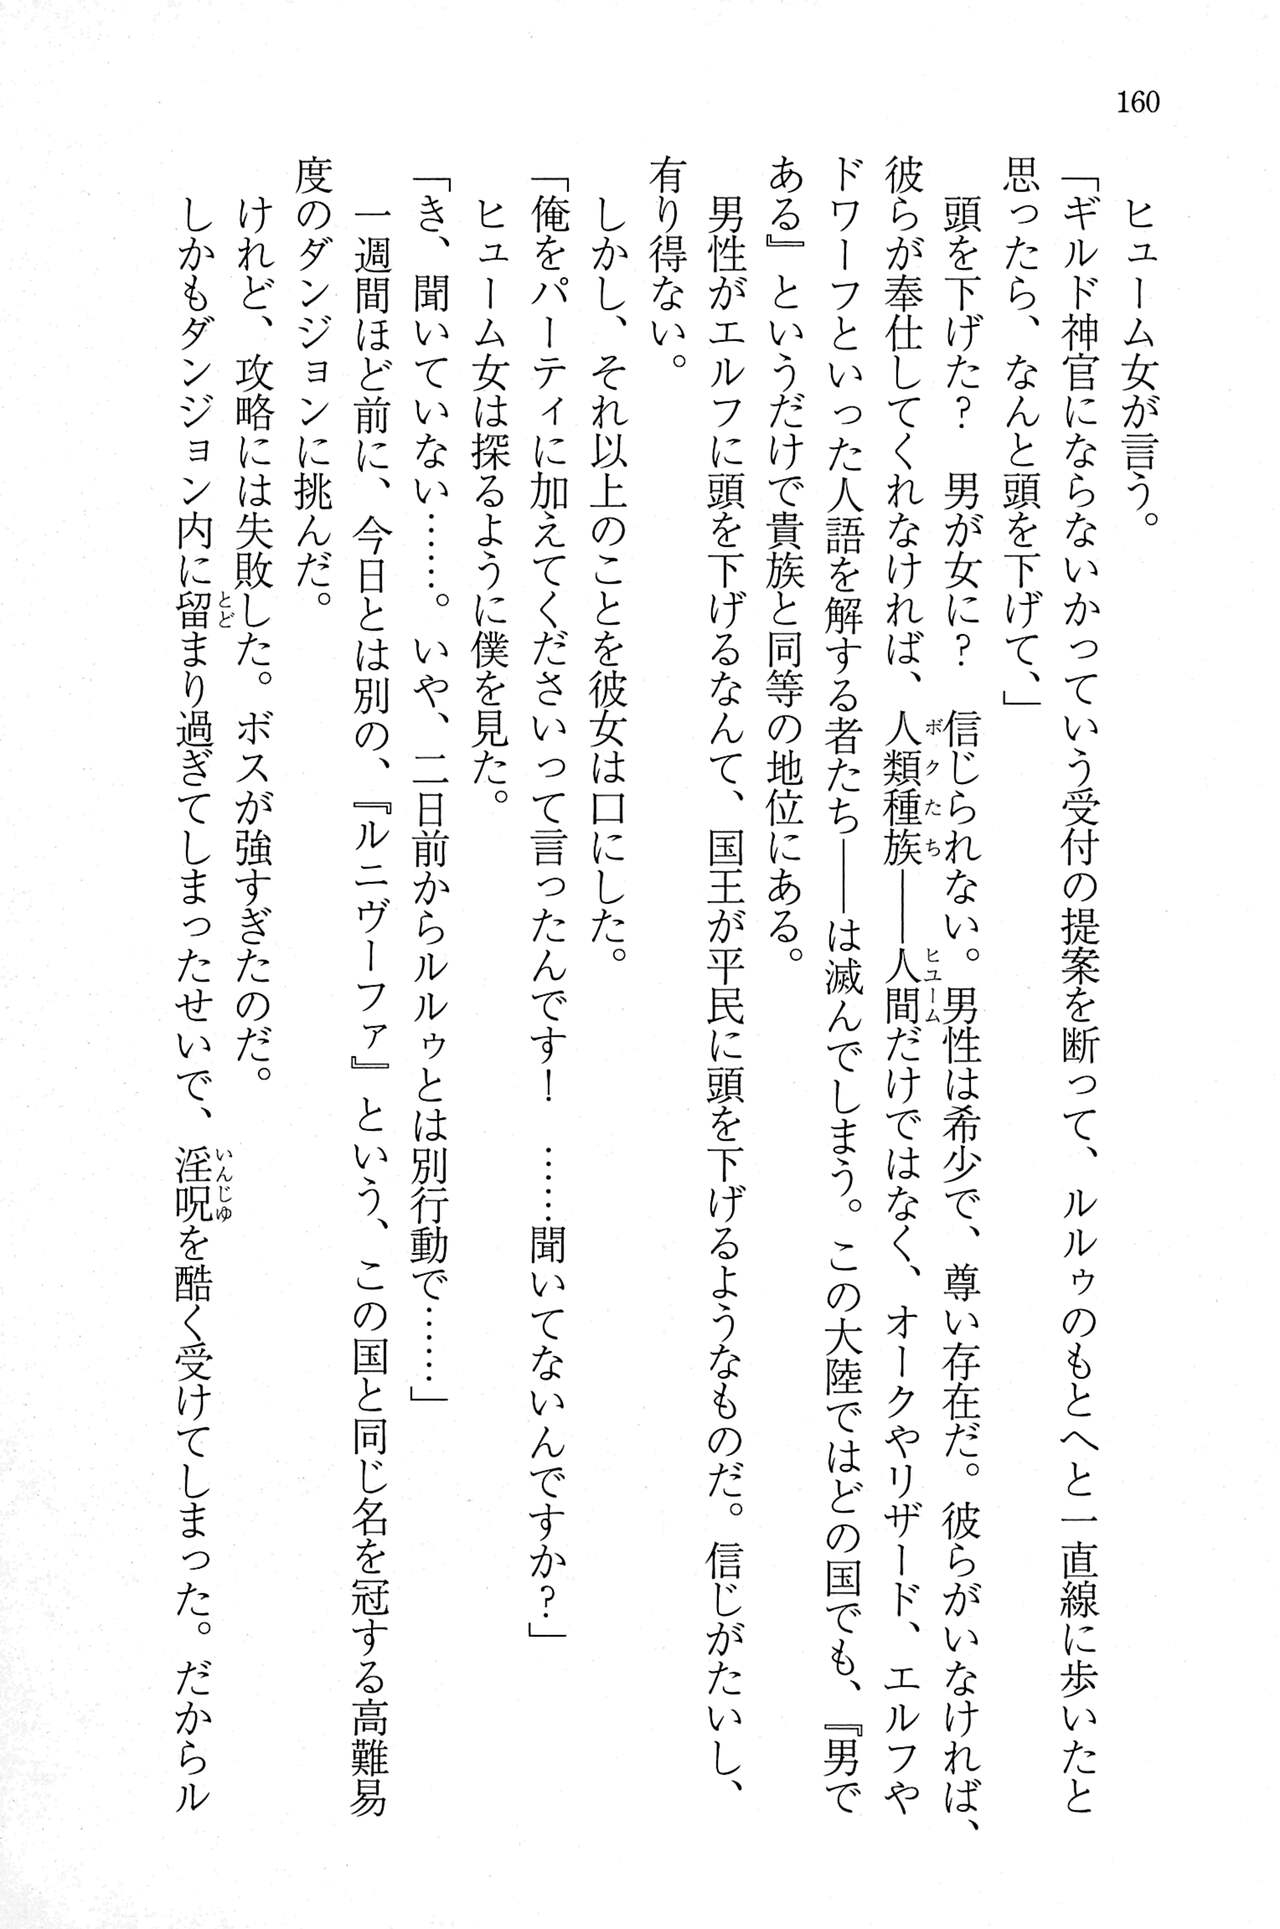 160
ヒューム女が言う。
「ギルド神官にならないかっていう受付の提案を断って、ルルゥのもとへと一直線に歩いたと
思ったら、なんと頭を下げて、」
頭を下げた？　男が女に？　信じられない。男性は希少で、尊い存在だ。彼らがいなければ、
彼らが奉仕してくれなければ、人類種族――人間だけではなく、オークやリザード、エルフや
ボクたち
ヒューム
ドワーフといった人語を解する者たち――は滅んでしまう。この大陸ではどの国でも、『男で
ある』というだけで貴族と同等の地位にある。
男性がエルフに頭を下げるなんて、国王が平民に頭を下げるようなものだ。信じがたいし、
有り得ない。
しかし、それ以上のことを彼女は口にした。
「俺をパーティに加えてくださいって言ったんです！　……聞いてないんですか？」
ヒューム女は探るように僕を見た。
「き、聞いていない……。いや、二日前からルルゥとは別行動で……」
一週間ほど前に、今日とは別の、『ルニヴーファ』という、この国と同じ名を冠する高難易
度のダンジョンに挑んだ。
けれど、攻略には失敗した。ボスが強すぎたのだ。
しかもダンジョン内に留まり過ぎてしまったせいで、淫呪を酷く受けてしまった。だからル
とど
いんじゆ